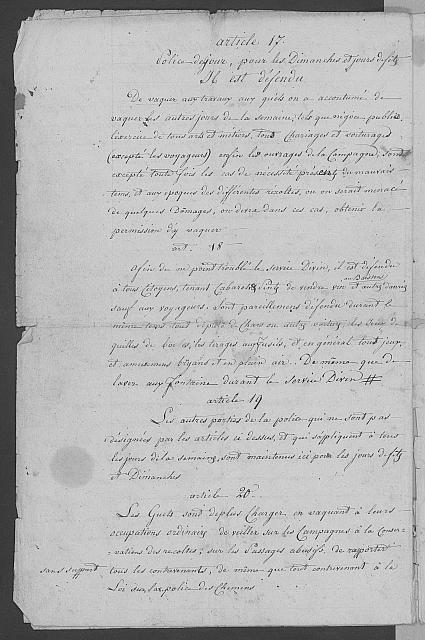 article 17.
Police de jour, pour les Dimanches et jours de fête
Il est défendu
De vaquer aux travaux aux quels on a accoutumé de
vaquer les autres jours de la semaine, tels que négoce public
l'exercice de tous arts et métiers, tout Chariages et voiturages
(excepté les voyageurs) enfin les ouvrages de la Campagne, sont
excepté toute fois les cas de nécessité présente du mauvais
tems, et aux époques des différentes récoltes, ou on serait menacé
de quelques Domages, on devra dans ces cas, obtenir la
permission d'y vaquer
art. 18
Afin de ne point troublé le service Divin, il est défendu
à tous Citoyens, tenant Cabarets de vendre vin et autres
sauf aux voyageurs. Sont pareillement défendu durant le
même tems tout de Chars ou autres les jeux de
quilles de bois, les tirages aux fusils, et en général tout jeux,
et amusemens bruyans et en plein air. De même que de
laver aux Fontaine durant le Service Divin #
article 19
Les autres parties de la police qui ne sont pas
désignées par les articles ci dessus, et qui s'appliquent à tous
les jours de la semaine, sont maintenues ici pour les jours de fêtes
et Dimanches
article 20.
Les Guets sont de plus Charger en vaquant à leurs
occupations ordinaire de veiller sur les Campagnes à la Conser-
vations des récoltes, sur les Passages abusifs, de rapporter
sans support tous les contrevenants, de même que tout contrevenant à la
Loi sur la police des Chemins